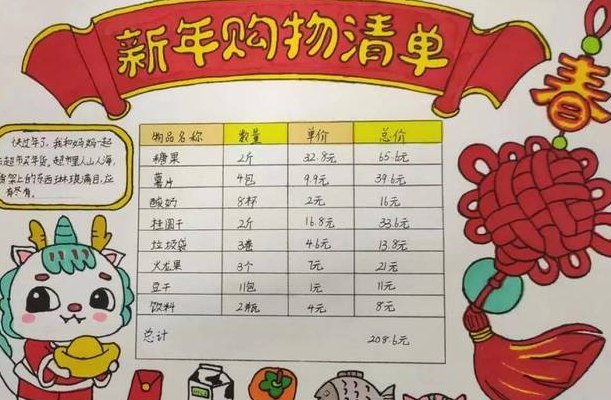 新年购物清单
春
快过年了，我和妈妈一起
去超市买年货，超市里人山人海，
货架上的东西琳琅满目，应
有尽有。
物品名称 数量 单价 总价
糖果 2斤 32.8元 65.6元
薯片 4包 9.9元 39.6元
酸奶 8杯 2元 16元
桂圆干 2斤 16.8元 33.6元
垃圾袋 3卷 4.6元 13.8元
火龙果 3个 7元 21元
豆干 11包 1元 11元
饮料 2瓶 4元 8元
总计 208.6元